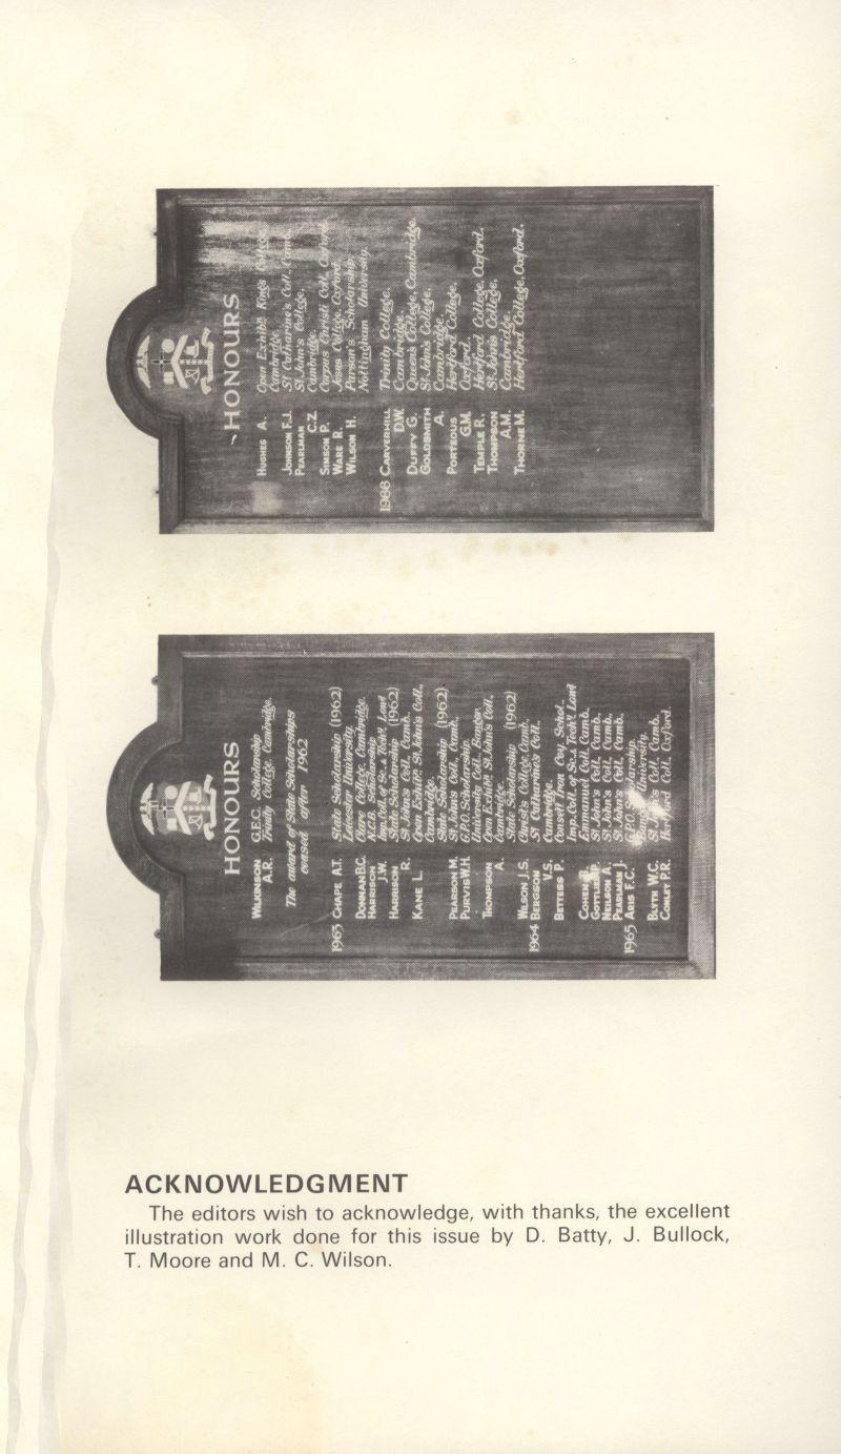 HONOURS
WILKINSON G.E.C. Scholarship
A.R. Trinity College, Cambridge.
The award of State Scholarships
ceased after 1962
1963 CHAPE A.T. State Scholarship (1962)
Leicester University.
DONNAN B.C. Clare College, Cambridge.
HARRISON N.C.B. Scholarship
J.W. Imp. Coll. of Sc. & Tech. Lond
HARRISON State Scholarship (1962)
R. St John's Coll. Camb.
KANE L. Open Exhibn St. John's Coll.
Cambridge.
State Scholarship (1962)
PEARSON M. St. John's Coll. Camb.
PURVIS W.H. G.P.O. Scholarship
University Coll. Bangor.
THOMPSON Open Exhibn St. John's Coll.
A. Cambridge.
State Scholarship (1962)
WILSON J.S. Christ's College, Camb.
1964 BERGSON St Catharine's Coll.
V.S. Cambridge.
BETTESS P. Consett Iron Coy Schol.
Imp. Coll. of Sc. & Tech. Lond
COHEN Emmanuel Coll. Camb.
GOTTLIEB St John's Coll. Camb.
NEILSON A. St John's Coll. Camb.
PEARLMAN J. St John's Coll. Camb.
1965 ARIS F.C. G.P.O. Scholarship.
University.
BLYTH W.C. St John's Coll. Camb.
CONLEY P.R. Hertford Coll. Oxford.
HONOURS
HUGHES A. Open Exhibn. King's College
Cambridge.
JOHNSON F.J. St Catharine's Coll. Camb.
PEARLMAN St John's College,
C.Z. Cambridge.
SIMSON P. Corpus Christi Coll. Oxford.
WARE R. Jesus College, Oxford
WILSON H. Parson's Scholarship
Nottingham University.
1966 CARVERHILL Trinity College,
D.W. Cambridge.
DUFFY G. Queens College, Cambridge.
GOLDSMITH St John's College,
A. Cambridge.
PORTEOUS Hertford College,
G.M. Oxford.
TEMPLE R. Hertford College, Oxford.
THOMPSON St John's College
A.M. Cambridge.
THORNE M. Hertford College, Oxford.
ACKNOWLEDGMENT
The editors wish to acknowledge, with thanks, the excellent
illustration work done for this issue by D. Batty, J. Bullock,
T. Moore and M. C. Wilson.